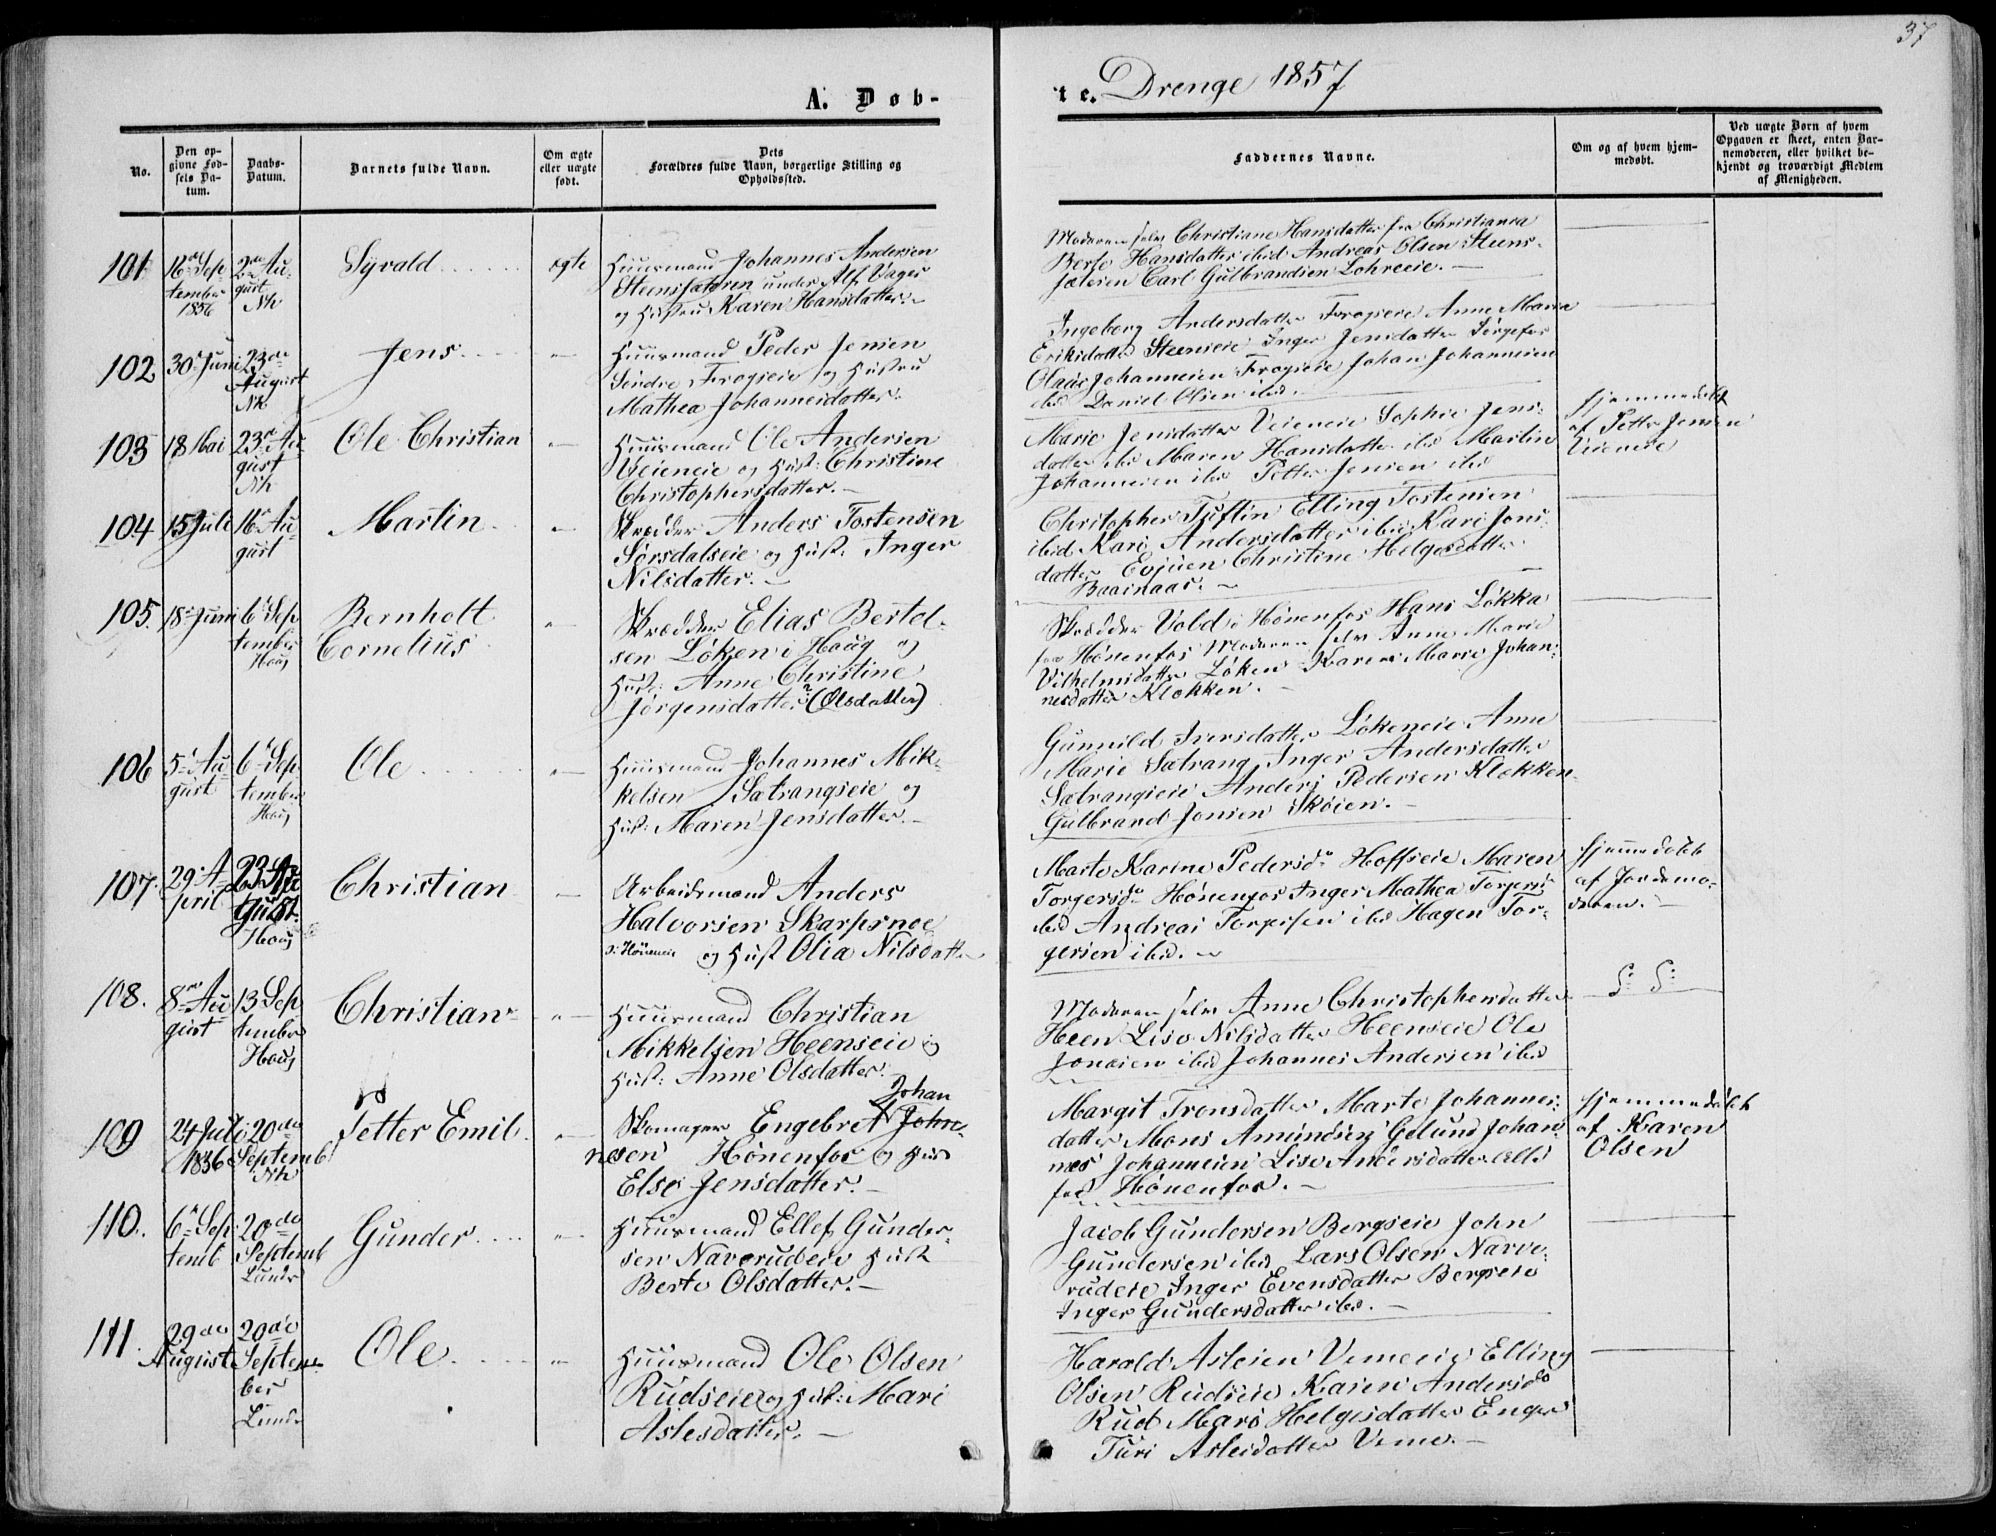 37
A. Døb-
te. Drenge 1857
No.
Den op-
givne Fød-
sels Da-
tum.
Daabs-
Datum.
Barnets fulde Navn.
Om ægte
eller uægte
født.
Dets
Forældres fulde Navn, borgerlige Stilling og
Opholdssted.
Faddernes Navne.
Om og af hvem hjem-
medøbt.
Ved uægte Børn af hvem
Opgaven er skeet, enten Bar-
nemoderen, eller hvilket be-
kjendt og troværdigt Medlem
af Menigheden.
101
16de Sep
tember
1856
2den Au-
gust
Nh
Syvald
ægte
Huusmand Johannes Andersen
Steensjøteren under Alf Vager
og Hustru Karen Hansdatter.
Moderen selv Christiane Hansdatter fra Christiania
Berte Hansdatter ibid Andreas Olsen Steens-
jøteren Carl Gulbrandsen Lohreeie.
102
30 Juni
23de
August
Nh
Jens
"
Huusmand Peder Jensen
Søndre Frogseie og Hustru
Mathea Johannesdatter.
Ingeberg Andersdatter Frogseie Anne Maria
Eriksdatter Steenseie Inger Jensdatter Børgefos
Olaus Johannesen Frogseie Johan Johannesen
ibid Daniel Olsen ibid.
103
18 Mai
23de Au-
gust
Nh
Ole Christian
"
Huusmand Ole Andersen
Veieneie og Hust: Christine
Christophersdatter.
Marie Jensdatter Veieneie Sophie Jens-
datter ibd Maren Hansdatter ibd Martin
Johannesen ibd Petter Jensen ibd
Hjemmedøbt
af Petter Jensen
Veieneie
104
15 Juli
16de Au-
gust
Martin
"
Skrædder Anders Tostensen
Sørsdalseie og Hust: Inger
Nilsdatter.
Christopher Tuftin Elling Tostensen
ibid Kari Andersdatter ibid Kari Jons-
datter Evjuen Christine Helgesdatter
Baasnaas.
105.
18 Juni
6 Sep
tember
Haug
Bernholt
Cornelius
"
Skrædder Elias Bertel-
sen Løken i Haug og
Hust: Anne Christine
Jørgensdatter? (Olsdatter)
Skrædder Vold i Hønenfos Hans Løkka
fra Hønenfos Moderen selv Anne Marie
Vilhelmsdatter Løken Karen Marie Johan-
nesdatter Klækken.
106
5 Au-
gust
6 Sep
tember
Haug
Ole
"
Huusmand Johannes Mik-
kelsen Sætrangseie og
Hust: Maren Jensdatter.
Gunnild Iversdatter Løkeneie Anne
Marie Sætrang Inger Andersdatter
Sætrangseie Anders Pedersen Klækken
Gulbrand Jonsen Skøien.
107.
29 A-
pril
23 Au
gust.
Haug
Christian
"
Arbeidsmand Anders
Halvorsen Skarpsnoe
og Hust Olia Nilsdatter
Marte Karine Pedersdr Hoffseie Maren
Torgersdr Hønenfos Inger Mathea Torgersd
ibd Andreas Torgersen ibd Hagen Tor-
gersen ibd.
Hjemmedøbt
af Jordemo-
deren.
108.
8de Au
gust
13 Sep
tember
Haug
Christian
"
Huusmand Christian
Mikkelsen Heenseie og
Hust: Anne Olsdatter.
Moderen selv Anne Christophersdatter
Heen Lise Nilsdatter Heenseie Ole
Jonsen ibd Johannes Andersen ibd
109
24 Juli
1836
20de
Septemb
Nh
Petter Emil
"
Skomager Engebret Johan
nesen Hønenfos og Hus
Else Jensdatter.
Margit Tronsdatter Marte Johannes-
datter Mons Amundsen Gulund Johan-
nes Johannesen Lise Andersdatter Alle
fra Hønenfos.
Hjemmedøbt
af Karen
Olsen
110.
6 Sep
temb
20de
Septemb
Lunde
Gunder
"
Huusmand Ellef Gunder-
sen Naverudeie Hust
Berte Olsdatter.
Jacob Gundersen Bergseie John
Gundersen ibd Lars Olsen Narve-
rudeie Inger Evensdatter Bergseie
Inger Gundersdatter ibd.
111
29de
August
20de
Septem
ber
Lunde
Ole
"
Huusmand Ole Olsen
Rudseie og Hust: Mari
Aslesdatter.
Harald Aslesen Vemeeie Elling
Olsen Rudseie Karen Andersd
Rud Mari Helgesdatter Enger
Turi Aslesdatter Veme.